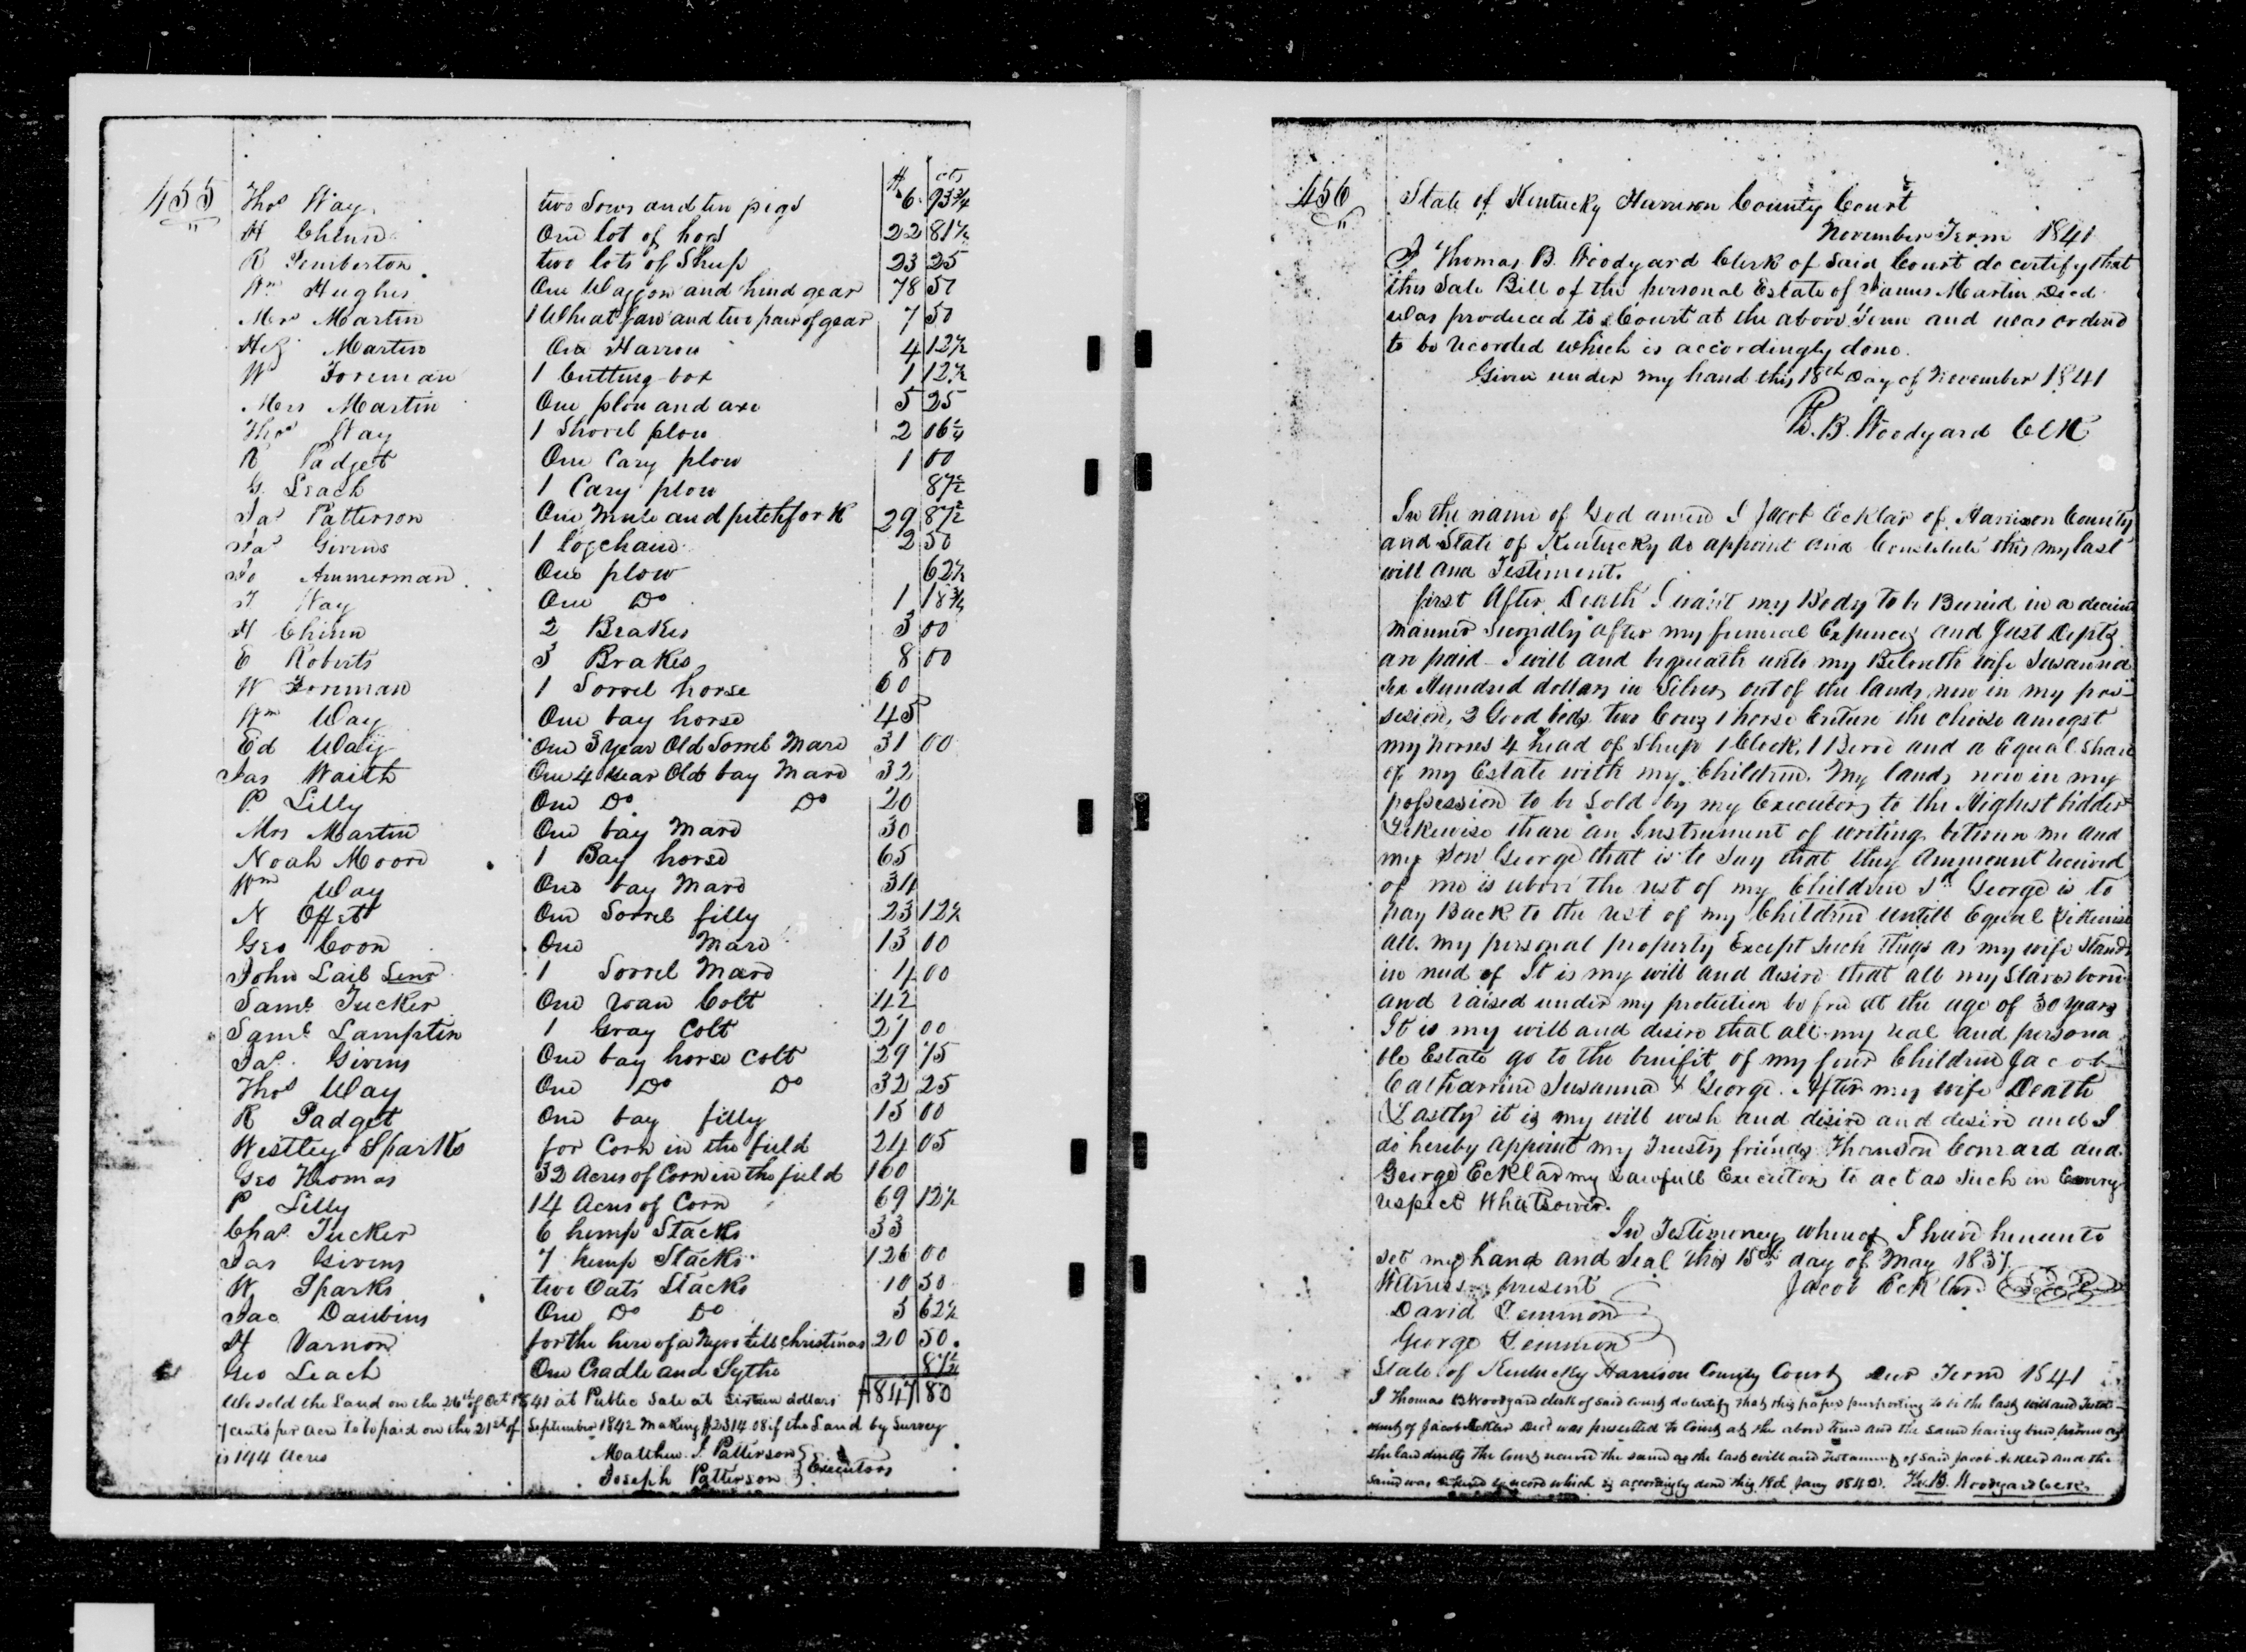 455
$ cts
Thos Way two Sows and ten pigs 6. 93¾
H Chinn One lot of hogs 22 81½
R Pemberton two lots of Sheep 23 25
Wm Hughes One Waggon and hind gear 78 50
Mrs Martin 1 Wheat fan and two pair of gear 7 50
Martin One Harrow 4 12½
W Foreman 1 Cutting box 1 12½
Mrs Martin One plow and axe 5 25
Thos Way 1 Shovel plow 2 06¼
R Padget One Cary plow 1 00
G. Leach 1 Cary plow 87½
Jas Patterson One Mule and pitchfork 29 87½
Jas Givens 1 logchain 2 50
Jo Ammerman One plow 62½
T Way One Do 1 18¾
H Chinn 2 Brakes 3 00
E Roberts 3 Brakes 8 00
W Foreman 1 Sorrel horse 60
Wm Way One bay horse 45
Ed Way One 3 year Old Sorrel Mare 31 00
Jas Waith One 4 year Old bay Mare 32
P. Lilly One Do Do 20
Mrs Martin One bay Mare 30
Noah Moore 1 Bay horse 65
Wm Way One bay Mare 34
N Offet One Sorrel filly 23 12½
Geo Coon One Mare 13 00
John Lail Senr 1 Sorrel Mare 4 00
Saml Tucker One roan Colt 42
Saml Lamptin 1 Gray Colt 27 00
Jas Givens One bay horse Colt 29 75
Thos Way One Do Do 32 25
R Padget One bay filly 15 00
Westley Sparks for Corn in the field 24 05
Geo Thomas 32 Acres of Corn in the field 160
P Lilly 14 Acres of Corn 69 12½
Chas Tucker 6 hemp Stacks 33
Jas Givens 7 hemp Stacks 126 00
W Sparks two Oats Stacks 10 50
Jac Daubins One Do Do 3 62½
H Varnon for the hire of a Negro till christmas 20 50.
Geo Leach One Cradle and Sythe 87½
We sold the Land on the 26th of Oct 1841 at Public Sale at Sixteen dollars 847 80
7 cents per acre to be paid on the 21st of September 1842 Making $2314.08 if the Land by Survey
is 144 Acres
Matthew. J. Patterson
Joseph Patterson } Executors
456
State of Kentucky Harrison County Court
November Term 1841
I Thomas B. Woodyard Clerk of Said Court do certify that
this Sale Bill of the personal Estate of James Martin Decd
was produced to Court at the above Term and was ordered
to be recorded which is accordingly done.
Given under my hand this 18th Day of November 1841
Th. B. Woodyard Clk
In the name of God amen I Jacob Ecklar of Harrison County
and State of Kentucky do appoint and Constitute this my last
will and Testiment.
first After Death I want my Body to be Buried in a decent
manner Secondly after my funeral Expences and Just Depts
are paid I will and bequeath unto my Beloveth wife Susanna
Six Hundred dollars in Silver out of the lands now in my pos-
sesion, 2 Good beds two Cows 1 horse Criture the choise amogst
my horses 4 head of Sheep 1 Clock, 1 Buro and a Equal Share
of my Estate with my Children. My lands now in my
possession to be Sold by my Executors to the Highest bidder
Likewise thare an Instrument of writing between me and
my Son George that is to Say that they Ammount received
of me is above the rest of my Children Sd George is to
pay Back to the rest of my Children untill Equal Likewise
all my personal property Except Such things as my wife Stands
in need of It is my will and desire that all my Slaves born
and raised under my protection be free at the age of 30 years
It is my will and desire that all my real and persona
ble Estate go to the benifit of my four Children Jacob
Catharrine Susanna & George. After my wife Death
Lastly it is my will wish and desire and desire and I
do hereby appoint my Trusty friends Thomson Conrard and
George Ecklar my Lawfull Executors to act as Such in Every
respect Whatsoever.
In Testimoney whereof I have hereunto
set my hand and Seal this 15th day of May 1837
Witness present Jacob Ecklar
David Lemmon
George Lemmon
State of Kentucky Harrison County Court Term 1841
I Thomas B Woodyard clerk of said court do certify that this paper purporting to be the last will and Testa-
ment of Jacob Ecklar Decd was presented to Court at the above term and the same having been proven as
the law directs the Court received the same as the last will and Testament of Said Jacob and the
same was record which is accordingly done this Jany Th. B. Woodyard Clerk